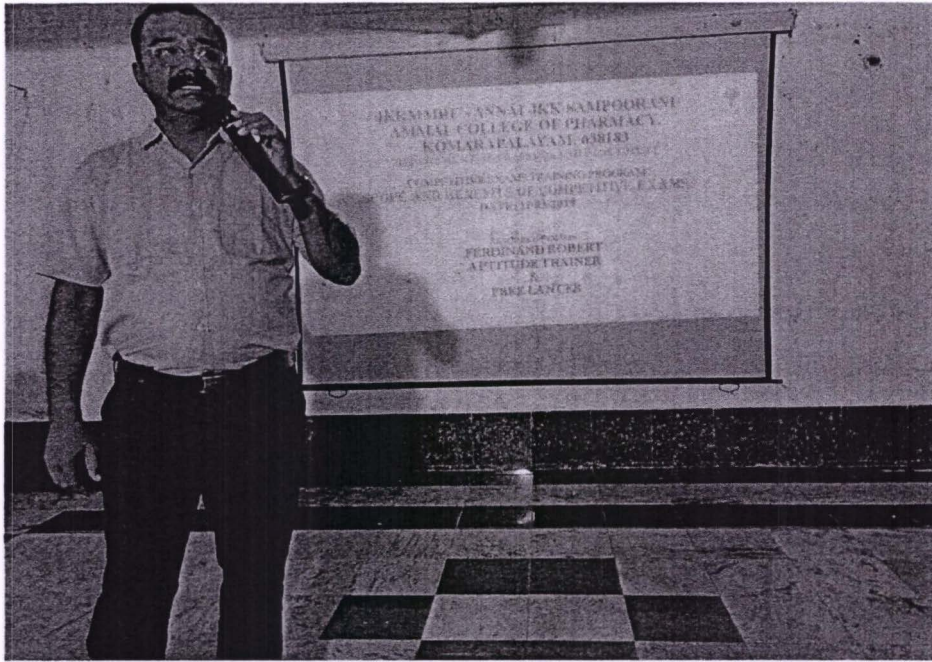 ANNAI JKK SAMPOORANI
AMMAL COLLEGE OF PHARMACY,
KOMARAPALAYAM, 638183
TRAINING PROGRAM
AND BENEFITS OF COMPETITIVE EXAMS
FERDINAND ROBERT
APTITUDE TRAINER
&
FREE LANCER